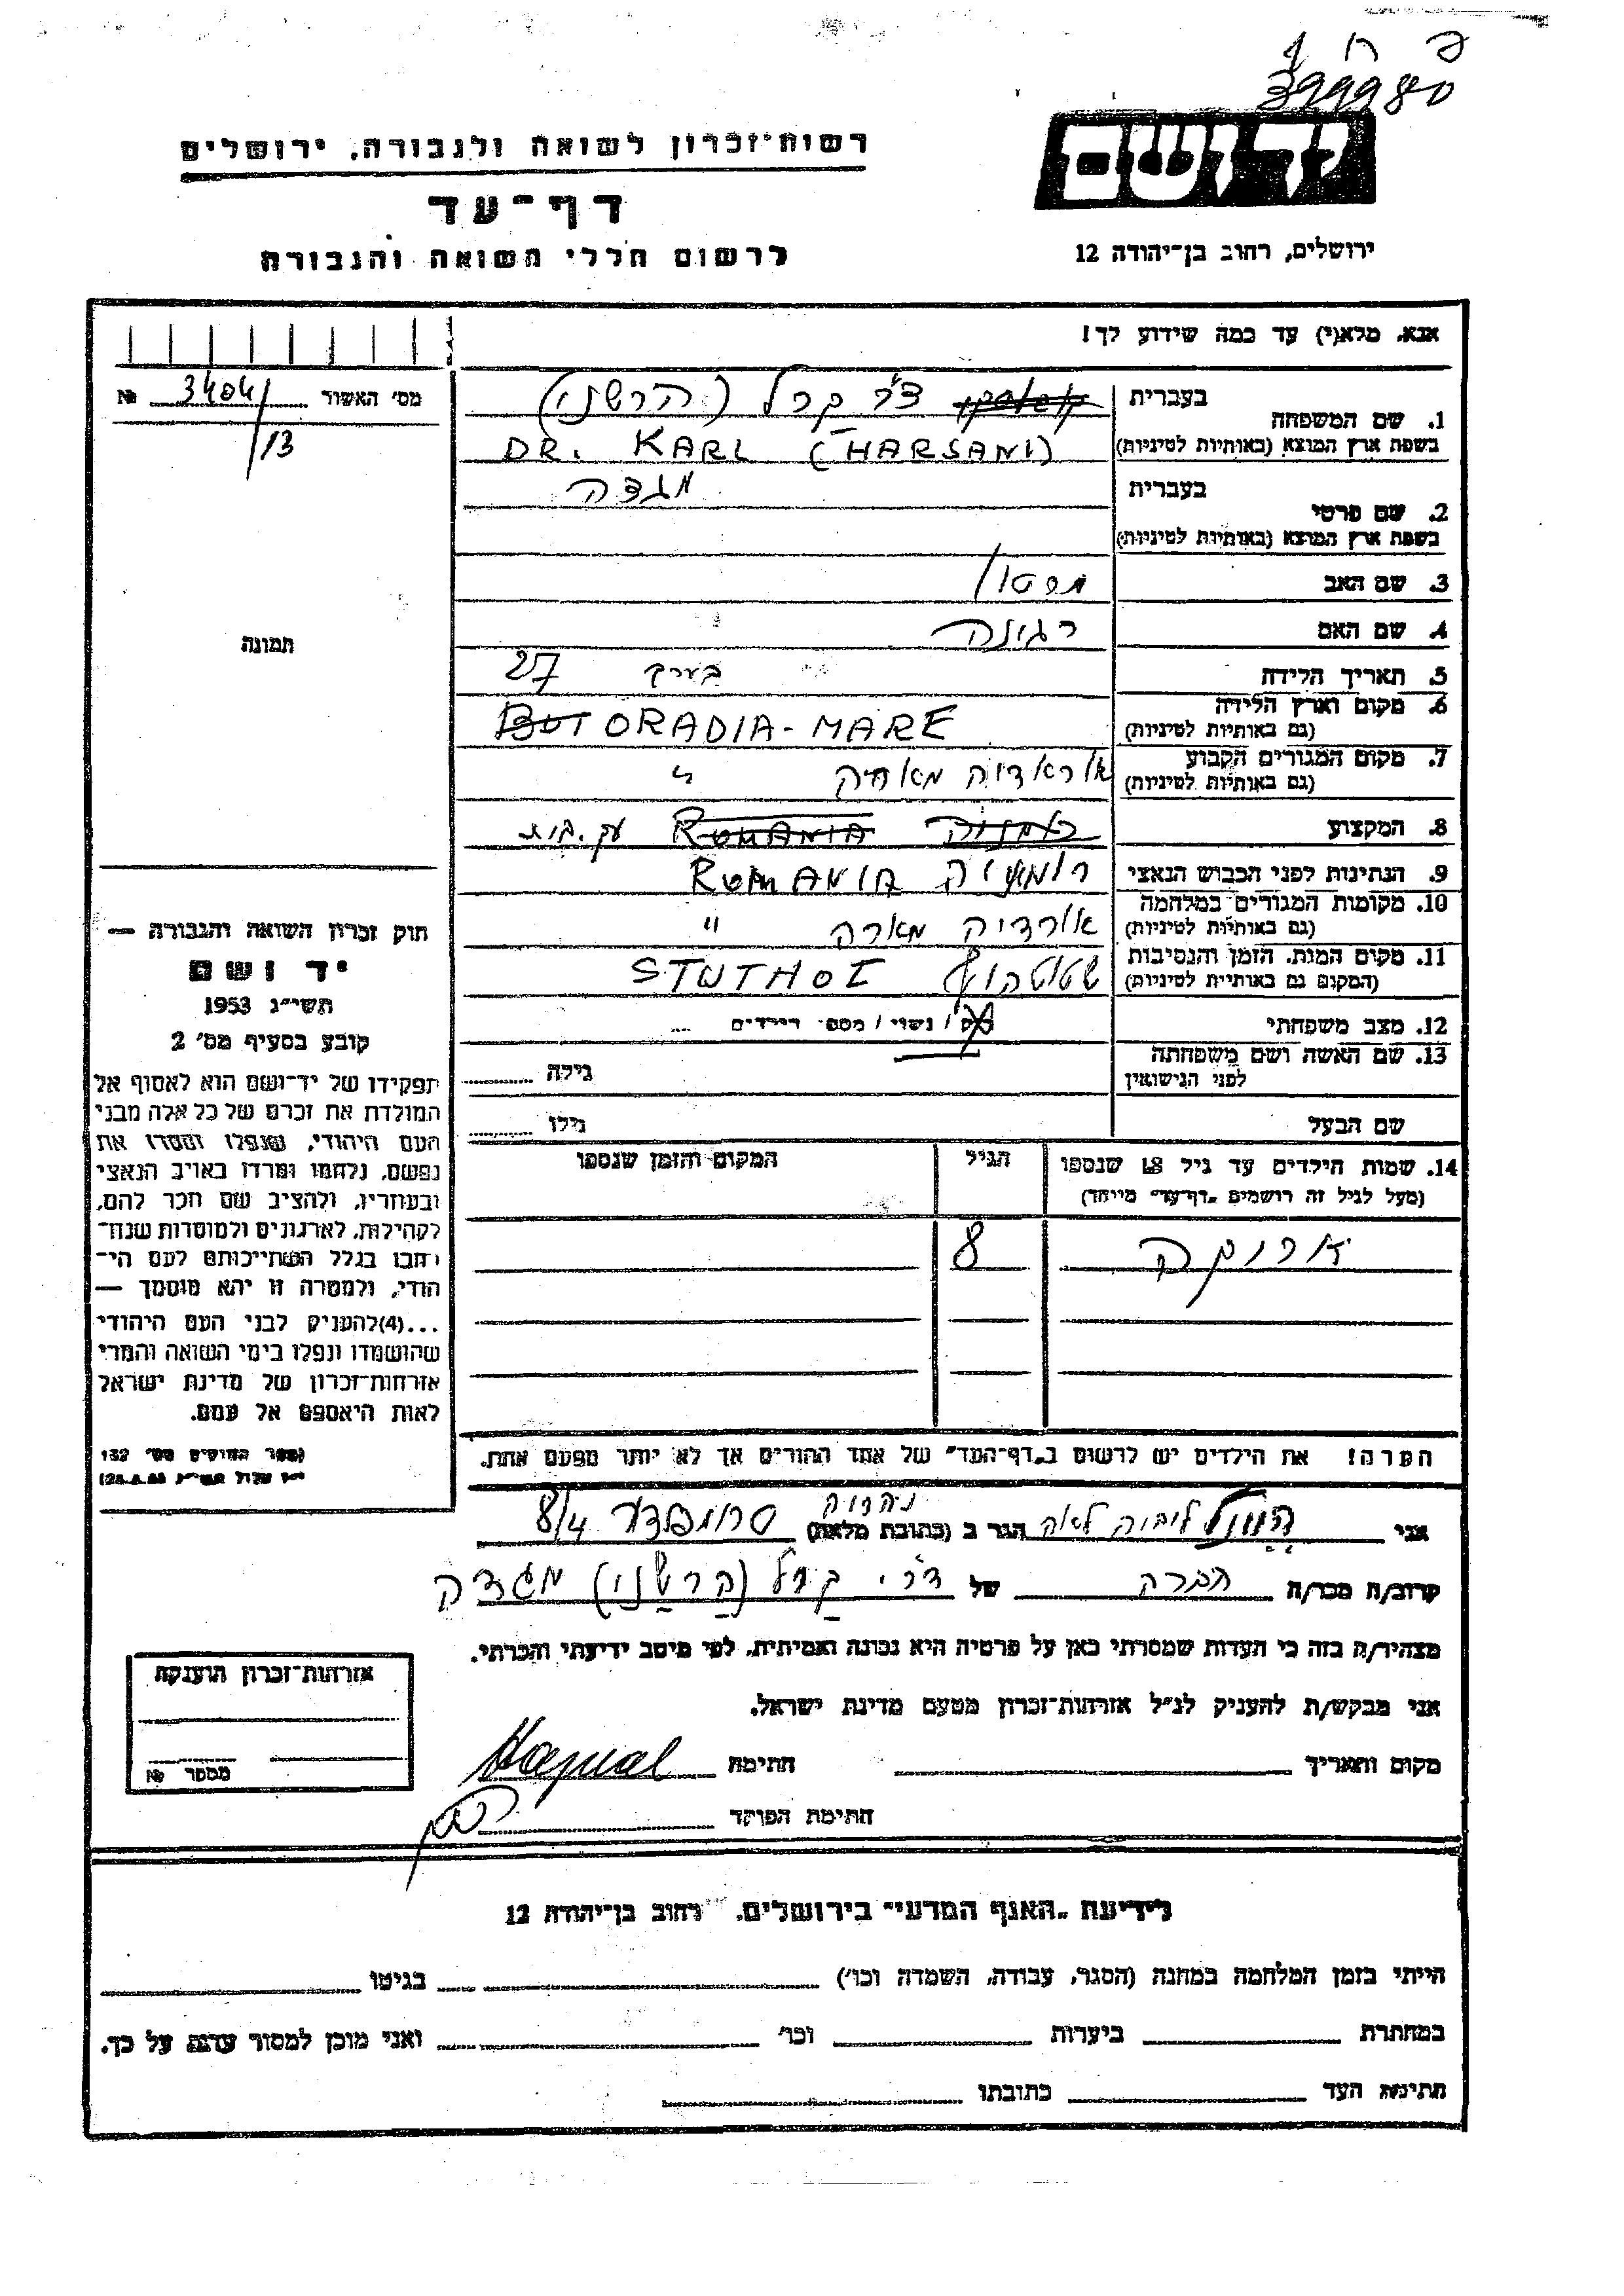 כ ח ף
399980
יד ושם
רשות־זכרון לשואה ולגבורה, ירושלים
דף־עד
לרשום חללי השואה והגבורה
ירושלים, רחוב בן־יהודה 12
אנא, מלא(י) עד כמה שידוע לך!
מס׳ האשור 34041 №
/13
1. שם המשפחה
בעברית ד״ר קרל (הרשני)
בשפת ארץ המוצא (באותיות לטיניות) DR. KARL (HARSANI)
2. שם פרטי
בעברית מגדה
בשפת ארץ המוצא (באותיות לטיניות)
3. שם האב
4. שם האם רגינה
5. תאריך הלידה בערך 27
6. מקום וארץ הלידה
(גם באותיות לטיניות) ORADIA-MARE
7. מקום המגורים הקבוע
(גם באותיות לטיניות) אוראדיה מאריה "
8. המקצוע ROMANIA עק. בית
9. הנתינות לפני הכבוש הנאצי רומניה ROMANIA
10. מקומות המגורים במלחמה
(גם באותיות לטיניות) אורדיה מארה "
11. מקום המות, הזמן והנסיבות
(המקום גם באותיות לטיניות) שטוטהוף STUTHOF
12. מצב משפחתי רוק / נשוי / מספר הילדים ...
13. שם האשה ושם משפחתה
לפני הנישואין גילה
שם הבעל גילו
14. שמות הילדים עד גיל 18 שנספו הגיל המקום והזמן שנספו
(מעל לגיל זה רושמים „דף־עד״ מיוחד)
8
הערה! את הילדים יש לרשום ב„דף־העד״ של אחד ההורים אך לא יותר מפעם אחת.
תמונה
חוק זכרון השואה והגבורה —
יד ושם
תשי״ג 1953
קובע בסעיף מס׳ 2
תפקידו של יד־ושם הוא לאסוף אל
המולדת את זכרם של כל אלה מבני
העם היהודי, שנפלו ומסרו את
נפשם, נלחמו ומרדו באויב הנאצי
ובעוזריו, ולהציב שם וזכר להם,
לקהילות, לארגונים ולמוסדות שנח־
רבו בגלל השתייכותם לעם הי־
הודי, ולמטרה זו יהא מוסמך —
...(4)להעניק לבני העם היהודי
שהושמדו ונפלו בימי השואה והמרי
אזרחות־זכרון של מדינת ישראל
לאות היאספם אל עמם.
(ספר החוקים מס׳ 132
י״ז אלול תשי״ג 28.8.53)
נהריה
אני ליביה לאה הגר ב (כתובת מלאה) 8/4
קרוב/ה מכר/ה חברה של ד״ר קרל (הרשני) מגדה
מצהיר/ה בזה כי העדות שמסרתי כאן על פרטיה היא נכונה ואמיתית, לפי מיטב ידיעתי והכרתי.
אני מבקש/ת להעניק לנ״ל אזרחות־זכרון מטעם מדינת ישראל.
מקום ותאריך חתימה
חתימת הפוקד
אזרחות־זכרון הוענקה
מספר №
לידיעת „האגף המדעי״ בירושלים, רחוב בן־יהודה 12
הייתי בזמן המלחמה במחנה (הסגר, עבודה, השמדה וכו׳) בגיטו
במחתרת ביערות וכו׳ ואני מוכן למסור עדות על כך.
חתימת העד כתובתו